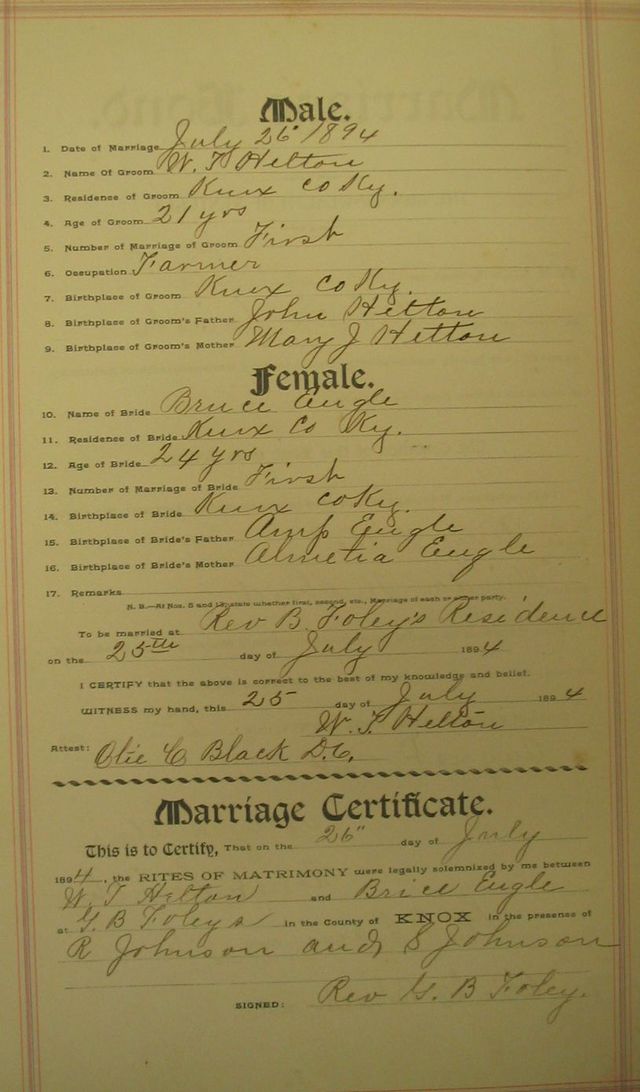 Male.
1. Date of Marriage July 26" 1894
2. Name Of Groom W. T Helton
3. Residence of Groom Knox Co Ky.
4. Age of Groom 21 yrs
5. Number of Marriage of Groom First
6. Occupation Farmer
7. Birthplace of Groom Knox Co Ky.
8. Birthplace of Groom's Father John Helton
9. Birthplace of Groom's Mother Mary J Helton
Female.
10. Name of Bride Bruce Engle
11. Residence of Bride Knox Co Ky.
12. Age of Bride 24 yrs
13. Number of Marriage of Bride First
14. Birthplace of Bride Knox Co Ky.
15. Birthplace of Bride's Father Amp Engle
16. Birthplace of Bride's Mother Engle
17. Remarks
N. B.—At Nos. 5 and 13, state whether first, second, etc., Marriage of each or either party.
To be married at Rev B Foley's Residence
on the 25th day of July 1894
I CERTIFY that the above is correct to the best of my knowledge and belief.
WITNESS my hand, this 25 day of July 1894
W. T. Helton
Attest: Olie C Black D.C.
Marriage Certificate.
This is to Certify, That on the 26" day of July
1894, the RITES OF MATRIMONY were legally solemnized by me between
W. T Helton and Brice Engle
at G. B Foleys in the County of KNOX in the presence of
R Johnson and S Johnson
SIGNED: Rev G. B Foley.